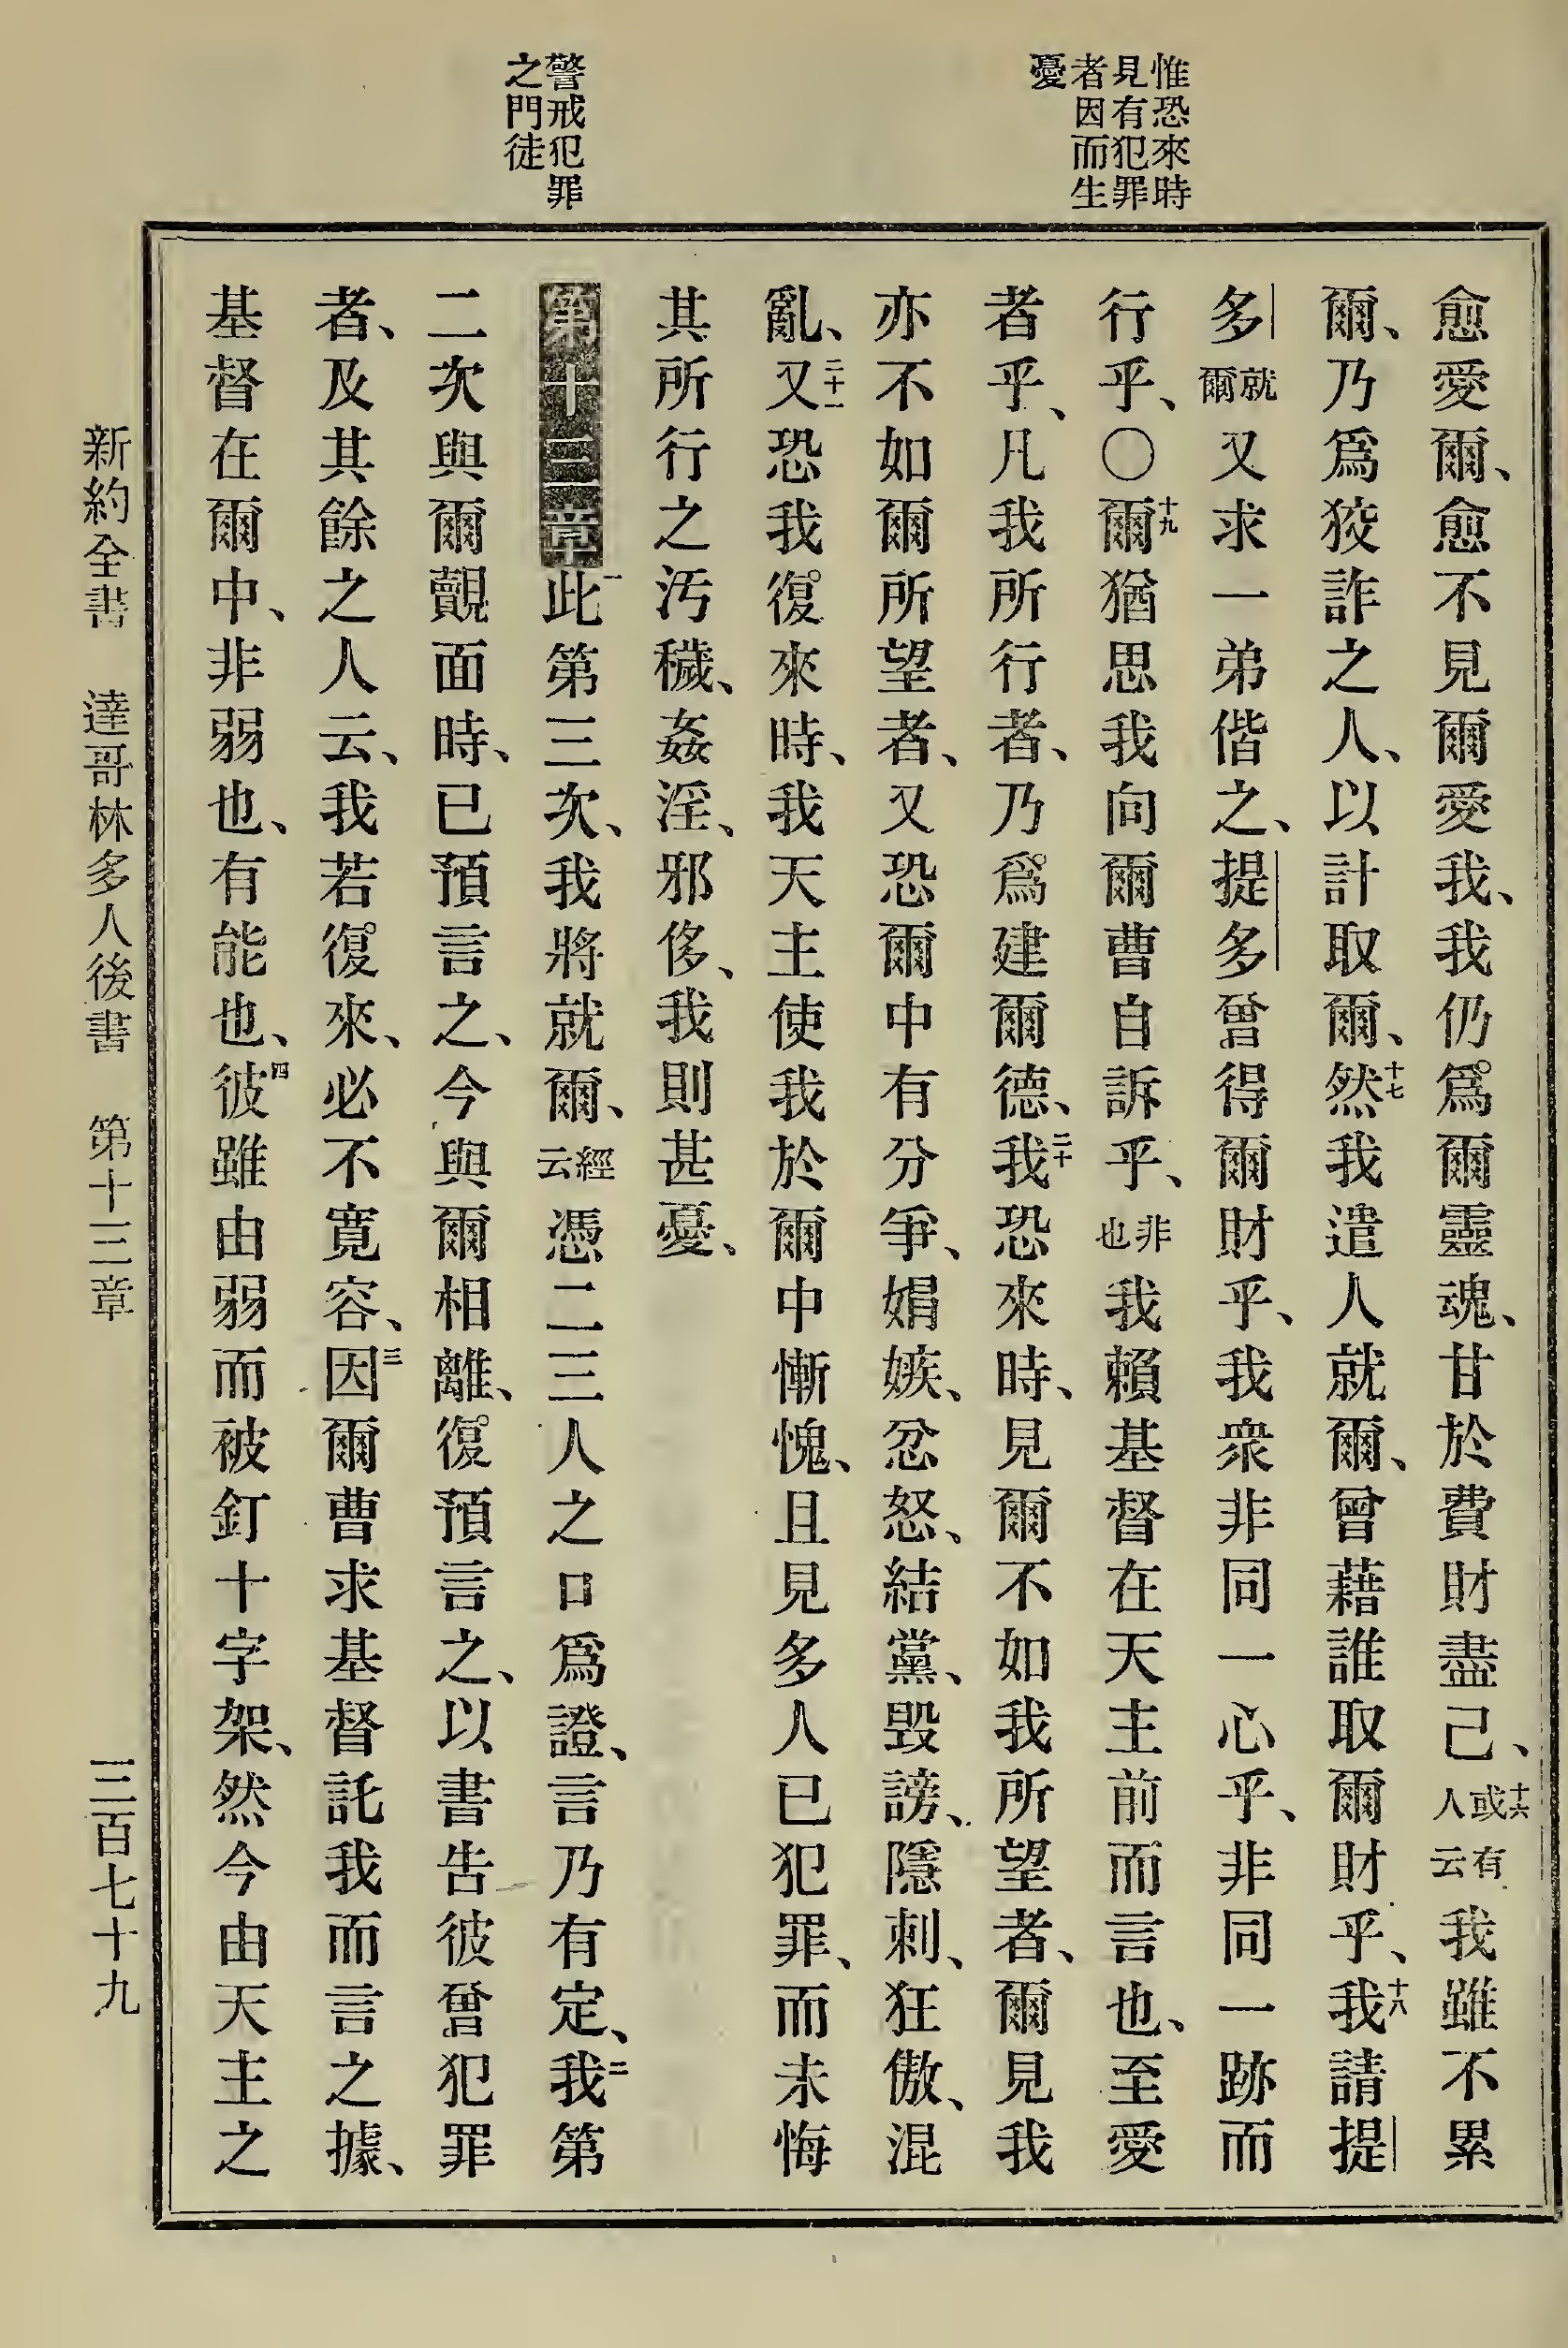 惟恐來時
見有犯罪
者因而生
憂
警戒犯罪
之門徒
愈愛爾、愈不見爾愛我、我仍爲爾靈魂、甘於費財盡己、十六或有人云我雖不累
爾、乃爲狡詐之人、以計取爾、十七然我遣人就爾、曾藉誰取爾財乎、十八我請提
多就爾又求一弟偕之、提多曾得爾財乎、我衆非同一心乎、非同一跡而
行乎、〇十九爾猶思我向爾曹自訴乎、非也我賴基督在天主前而言也、至愛
者乎、凡我所行者、乃爲建爾德、二十我恐來時、見爾不如我所望者、爾見我
亦不如爾所望者、又恐爾中有分爭、娟嫉、忿怒、結黨、毀謗、隱刺、狂傲、混
亂、二十一又恐我復來時、我天主使我於爾中慚愧、且見多人已犯罪、而未悔
其所行之汚穢、姦淫、邪侈、我則甚憂、
第十三章一此第三次、我將就爾、經云憑二三人之口爲證、言乃有定、二我第
二次與爾覿面時、已預言之、今與爾相離、復預言之、以書告彼曾犯罪
者、及其餘之人云、我若復來、必不寬容、三因爾曹求基督託我而言之據、
基督在爾中、非弱也、有能也、四彼雖由弱而被釘十字架、然今由天主之
新約全書 達哥林多人後書 第十三章 三百七十九